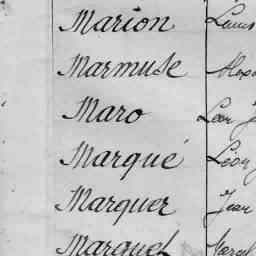 Marion Louis
Marmuse
Maro Léon
Marqué Léon
Marquer Jean
Marquet Marcel